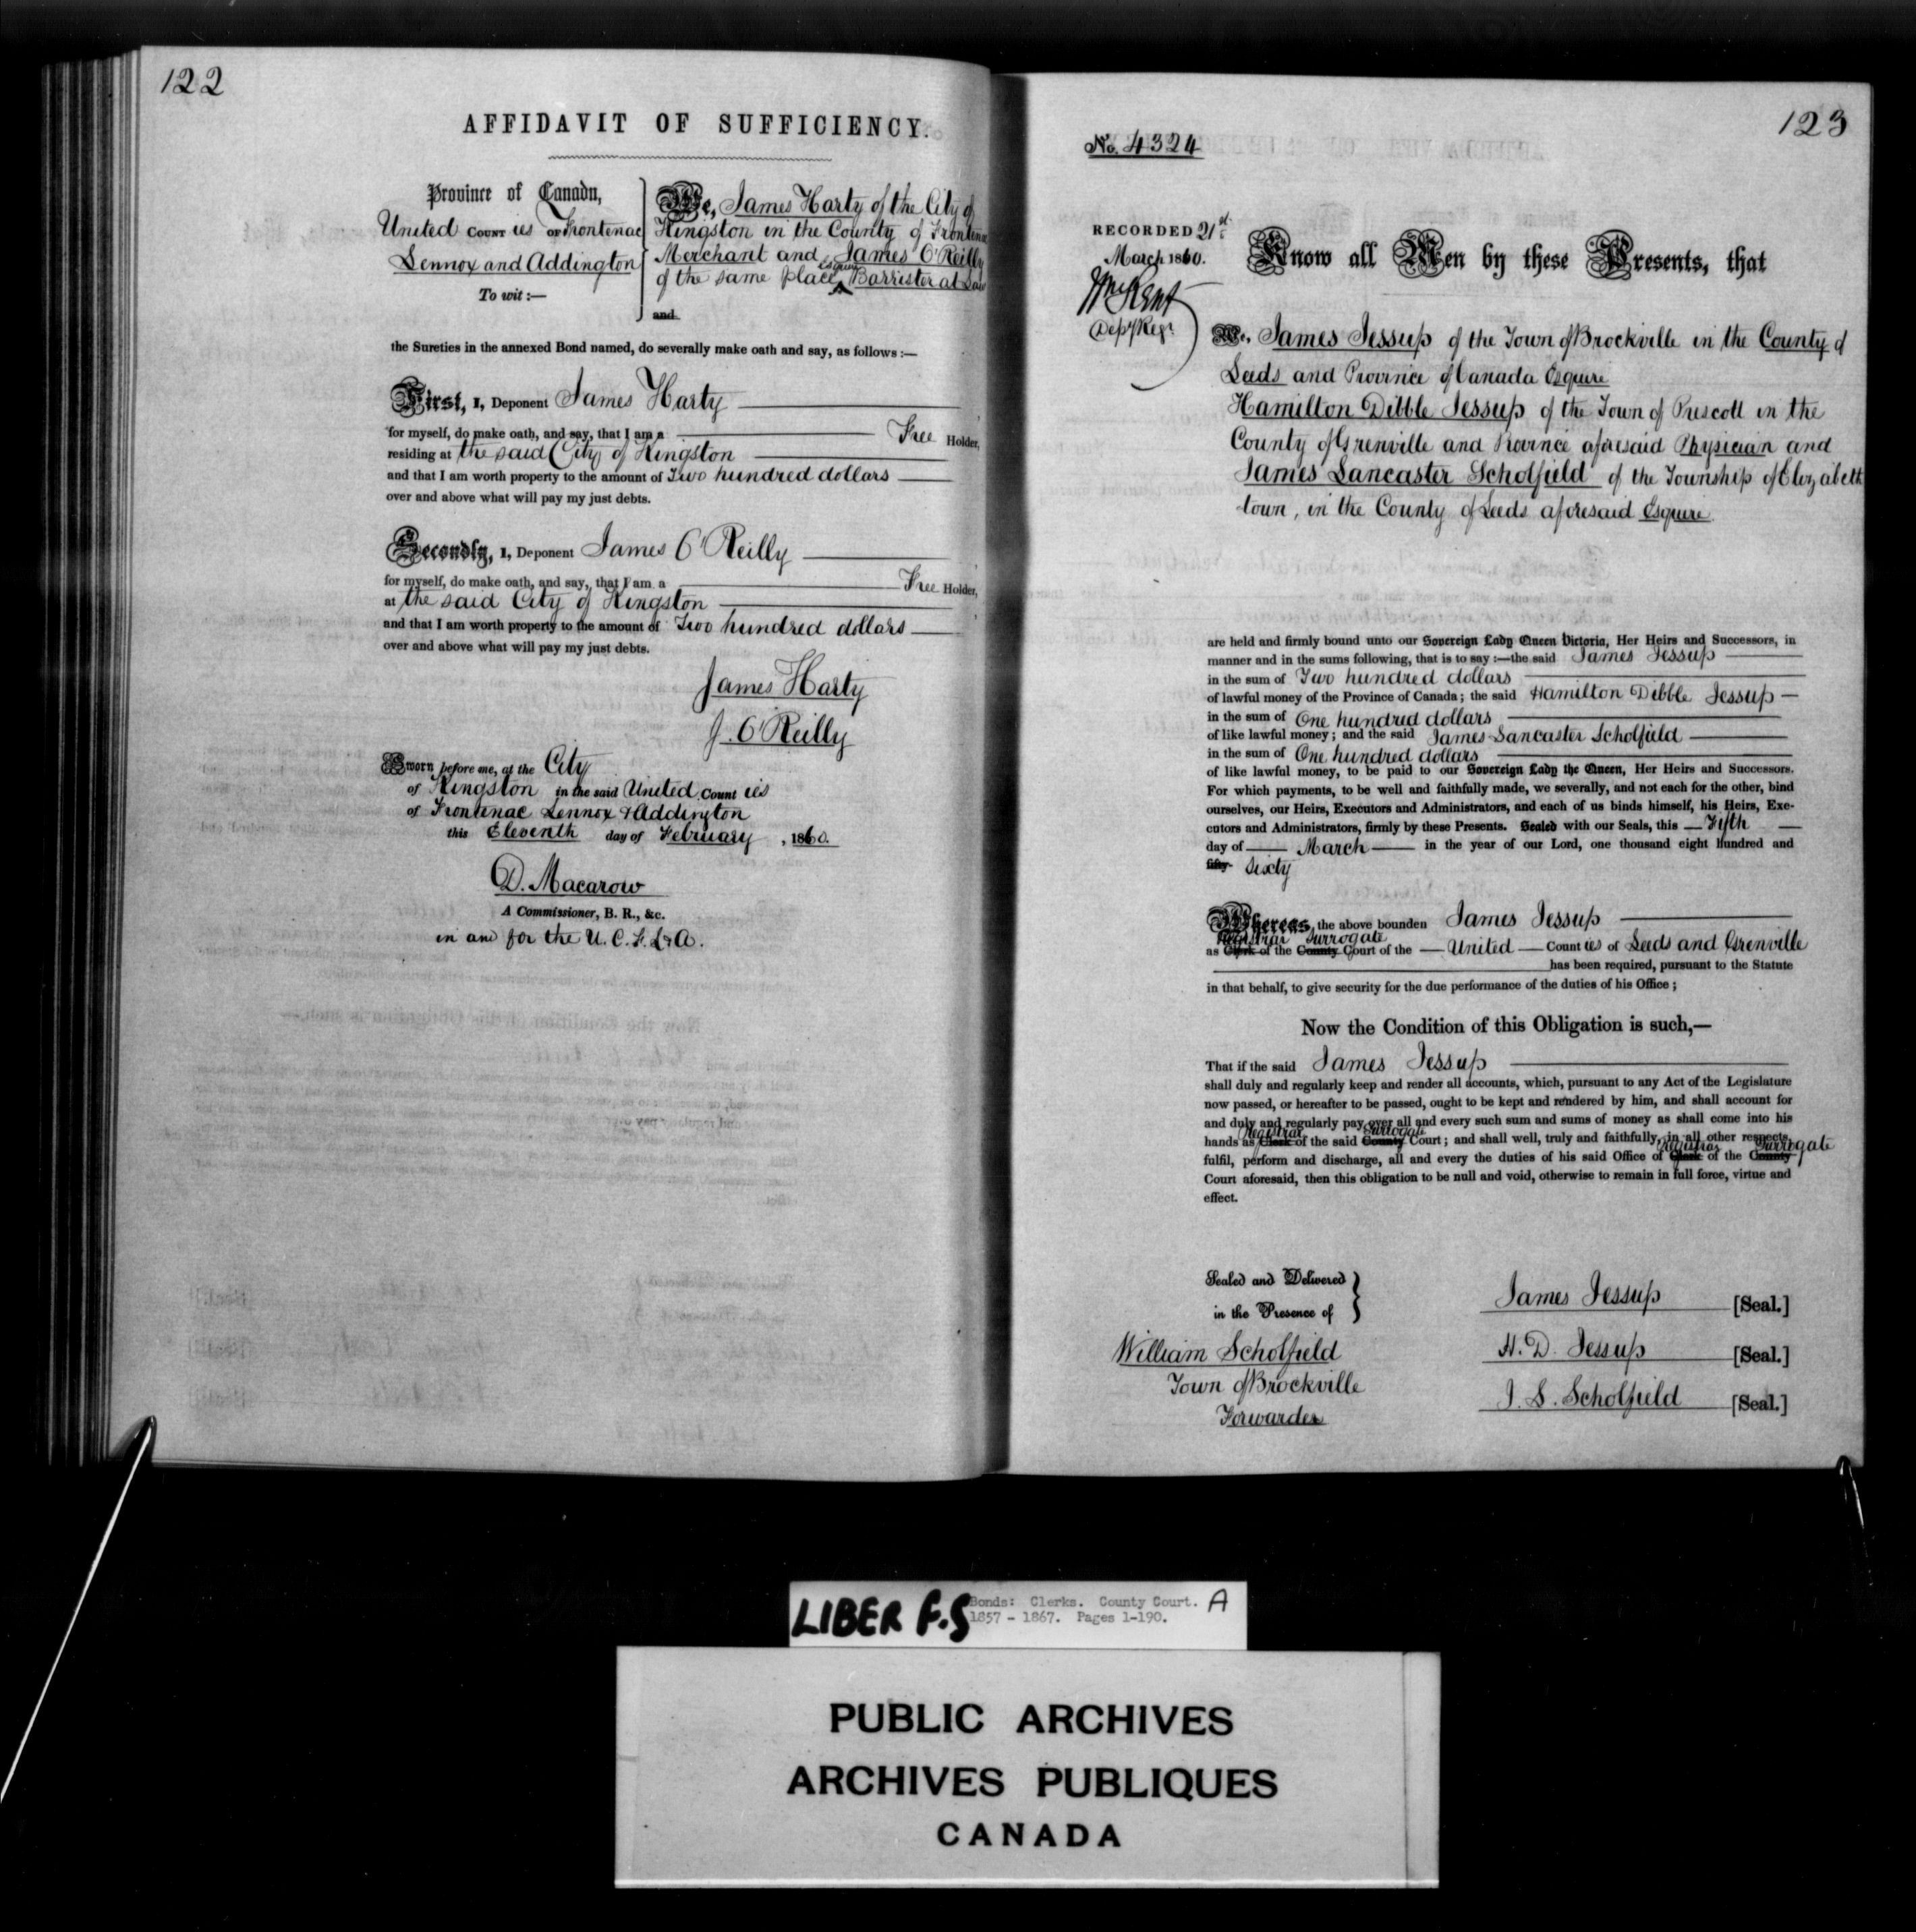 122
AFFIDAVIT OF SUFFICIENCY.
Province of Canada,
United COUNTies OF Frontenac
Lennox and Addington
To wit:—
We, James Harty of the City of
Kingston in the County of Frontenac
Merchant and James O'Reilly
of the same place Esquire Barrister at Law
and
the Sureties in the annexed Bond named, do severally make oath and say, as follows:—
First, I, Deponent James Harty
for myself, do make oath, and say, that I am a Free Holder,
residing at the said City of Kingston
and that I am worth property to the amount of Two hundred dollars
over and above what will pay my just debts.
Secondly, I, Deponent James O'Reilly
for myself, do make oath, and say, that I am a Free Holder,
at the said City of Kingston
and that I am worth property to the amount of Two hundred dollars
over and above what will pay my just debts.
James Harty
J. O'Reilly
Sworn before me, at the City
of Kingston in the said United Counties
of Frontenac Lennox & Addington
this Eleventh day of February, 1860.
D. Macarow
A Commissioner, B. R., &c.
in and for the U. C. F. L & A.
123
No. 4324
RECORDED 21st
March 1860.
Wm Kent
Depy Regr
Know all Men by these Presents, that
We, James Jessup of the Town of Brockville in the County of
Leeds and Province of Canada Esquire
Hamilton Dibble Jessup of the Town of Prescott in the
County of Grenville and Province aforesaid Physician and
James Lancaster Scholfield of the Township of Elizabeth
town, in the County of Leeds aforesaid Esquire
are held and firmly bound unto our Sovereign Lady Queen Victoria, Her Heirs and Successors, in
manner and in the sums following, that is to say:—the said James Jessup
in the sum of Two hundred dollars
of lawful money of the Province of Canada; the said Hamilton Dibble Jessup
in the sum of One hundred dollars
of like lawful money; and the said James Lancaster Scholfield
in the sum of One hundred dollars
of like lawful money, to be paid to our Sovereign Lady the Queen, Her Heirs and Successors.
For which payments, to be well and faithfully made, we severally, and not each for the other, bind
ourselves, our Heirs, Executors and Administrators, and each of us binds himself, his Heirs, Exe-
cutors and Administrators, firmly by these Presents. Sealed with our Seals, this Fifth
day of March in the year of our Lord, one thousand eight Hundred and
fifty sixty
Whereas, the above bounden James Jessup
Registrar Surrogate
as Clerk of the County Court of the United Counties of Leeds and Grenville
has been required, pursuant to the Statute
in that behalf, to give security for the due performance of the duties of his Office;
Now the Condition of this Obligation is such,—
That if the said James Jessup
shall duly and regularly keep and render all accounts, which, pursuant to any Act of the Legislature
now passed, or hereafter to be passed, ought to be kept and rendered by him, and shall account for
and duly and regularly pay over all and every such sum and sums of money as shall come into his
Registrar Surrogate
hands as Clerk of the said County Court; and shall well, truly and faithfully, in all other respects,
Registrar Surrogate
fulfil, perform and discharge, all and every the duties of his said Office of Clerk of the County
Court aforesaid, then this obligation to be null and void, otherwise to remain in full force, virtue and
effect.
Sealed and Delivered
in the Presence of
William Scholfield
Town of Brockville
Forwarder
James Jessup [Seal.]
H. D. Jessup [Seal.]
J. L. Scholfield [Seal.]
LIBER F.S
Bonds: Clerks. County Court. A
1857 - 1867. Pages 1-190.
PUBLIC ARCHIVES
ARCHIVES PUBLIQUES
CANADA